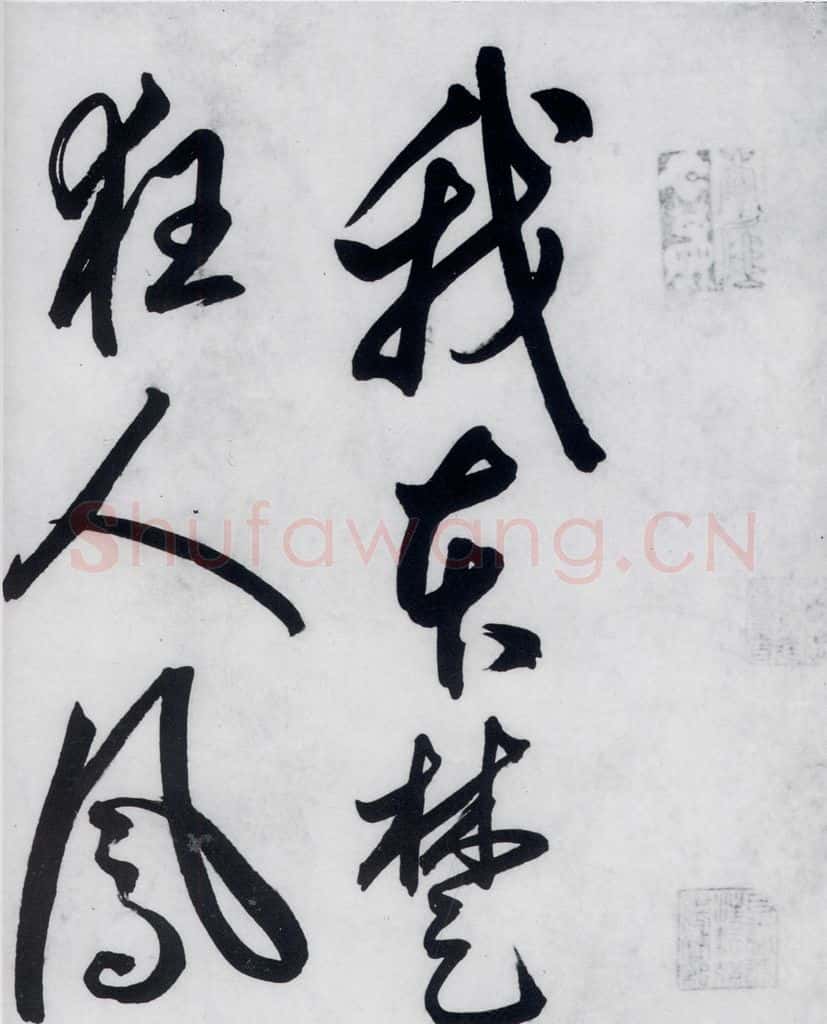 我本楚
狂人鳳
Shufawang.CN